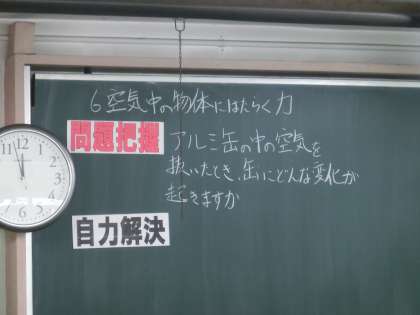 6 空気中の物体にはたらく力
問題把握 アルミ缶の中の空気を
抜いたとき、缶にどんな変化が
起きますか
自力解決